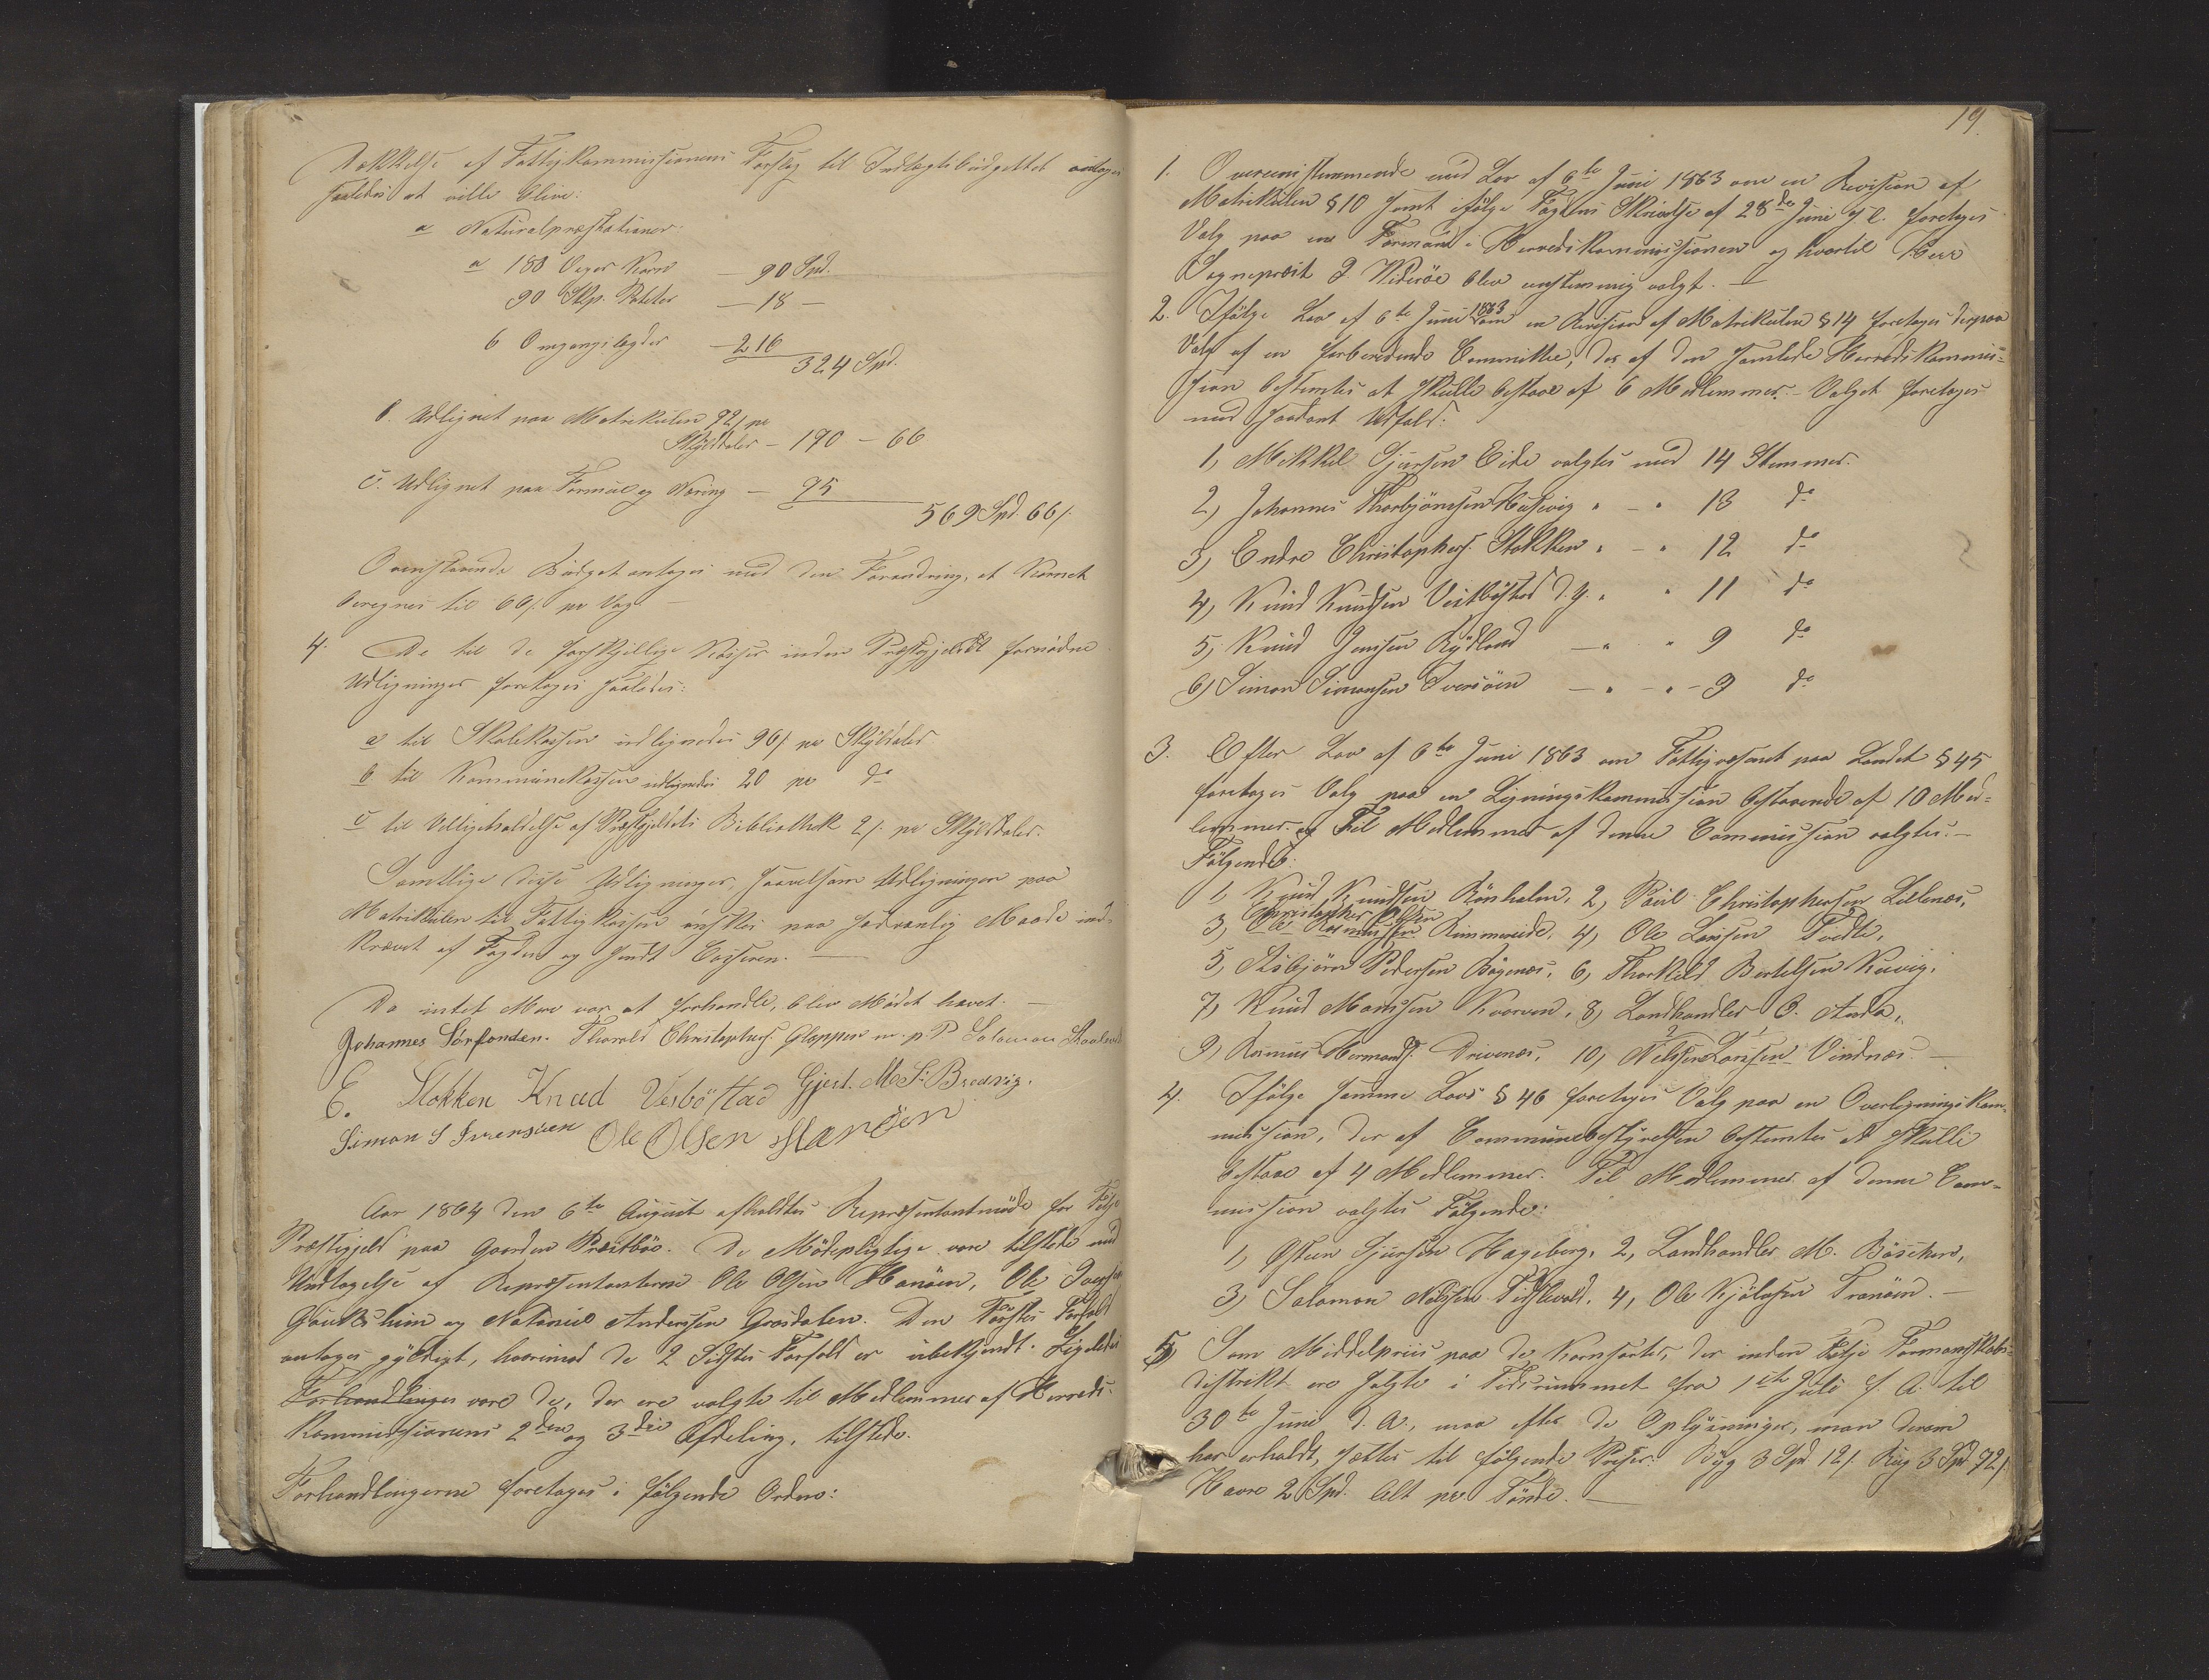 Dækkelse af Fattigkommissionens Forslag til Indtægtsbudgettet antoges
saaledes at ville blive:
a Naturalpræstationer:
a 180 Voger Korn — 90 Spd.
90 Skp. Poteter — 18 —
6 Omgangslægder — 216
324 Spd.
b. Udlignet paa Matrikulen 72/ pr
Skylddaler — 190 — 66
c. Udlignet paa Formue og Næring — 95
569 Spd. 66/.
Ovenstaaende Budget antoges med den Forandring, at Kornet
beregnes til 60/. pr Vog. —
4. De til de forskjellige Kasser inden Præstegjeldet fornødne
Udligninger foretoges saaledes:
a til Skolekassen udlignedes 96/. pr Skylddaler
b til Kommunekassen udlignedes 20 pr do
c til Vedligeholdelse af Præstegjeldets Bibliothek 2/. pr Skylddaler.
Samtlige disse Udligninger, saavelsom Udligningen paa
Matrikulen til Fattigkassen ønskes paa sædvanlig Maade ind-
krævet af Fogden og sendt Casseren. —
Da intet Mere var at forhandle, blev Mødet hævet. —
Johannes Sørfonden. Thorvald Christophers. Gloppen m. p. P Salamon
E. Stokken Knud Vesböstad Gjert. M. S. Bredvig.
Simon S Iversøen Ole Olsen Hanøen
Aar 1864 den 6te August afholdtes Repræsentantmöde for Fitje
Præstegjeld paa Gaarden Præstböe. De Mödepligtige vare tilstede med
Undtagelse af Repræsentanterne Ole Olsen Hanöen, Ole Iversen
Goukshiim og Nataniel Andersen Grøsdalen. Den Førstes Forfald
antoges gyldigt, hvorimod de 2 Sidstes Forfald er ubekjendt. Ligeledes
Forhandlinger vare de, der ere valgte til Medlemmer af Herreds-
kommissionens 2den og 3die Afdeling, tilstede.
Forhandlingerne foretoges i følgende Orden:
19.
1. Overeensstemmende med Lov af 6te Juni 1863 om en Revision af
Matrikulen §10 samt ifølge Fogdens Skrivelse af 28de Juni f. l. foretoges
Valg paa en Formand i Herredskommissionen og hvortil Herr
Sogneprest J. Widerøe blev enstemmig valgt. —
2. Ifølge Lov af 6te Juni 1863 om en Revision af Matrikulen §14 foretoges derpaa
Valg af en forberedende Committee, der af den samlede Herredskommis=
sion bestemtes at skulle bestaae af 6 Medlemmer. Valget foretoges
med saadant Udfald:
1, Mikkel Sjursen Eide valgtes med 14 Stemmer.
2, Johannes Thorbjörnsen " — " 13 do
3, Endre Christophers. Stokken " — " 12 do
4, Knud Knudsen Vestböstad d. y. " " 11 do
5, Knud Jensen Rydland — " " 9 do
6) Simon Simonsen Iversöen — " — " — 9 do
3. Efter Lov af 6te Juni 1863 om Fattigvæsenet paa Landet §45
foretoges Valg paa en Ligningskommission bestaaende af 10 Med=
lemmer og Til Medlemmer af denne Commission valgtes. —
Følgende:
1, Knud Knudsen Rönholm, 2, Poul Christophersen Lillenæs,
Christopher Olsen
3, Ole Rasmussen Rimmereide, 4, Ole Larssen Tvedte,
5, Asbjörn Pedersen Bögenæs, 6, Thorkild Bertelsen Kuvig,
7, Knud Monssen Kvarven, 8, Landhandler O. Anda,
9, Rasmus Hermands. Drivenæs, 10, Nilssen Larssen Vindnæs. —
4. Ifølge samme Lovs §46 foretoges Valg paa en Overligningskom-
mission, der af Communebestyrelsen bestemtes at skulle
bestaae af 4 Medlemmer. Til Medlemmer af denne Com-
mission valgtes Følgende:
1, Østen Sjursen Hageberg, 2, Landhandler M. Böschen,
3, Salamon Nilssen, 4, Ole Kjölosen Tranöen. —
5, Som Middelpriis paa de Kornsorter, der inden Fitje Formandskabs-
distrikt ere solgte i Tidsrummet fra 1ste Juli f. A. til
30te Juni d. A., maa efter de Oplysninger, man derom
har erholdt, sættes til følgende Priser: Byg 3 Spd 12/. Rug 3 Spd 72/.
Havre 2 Spd. Alt pr Tønde. —